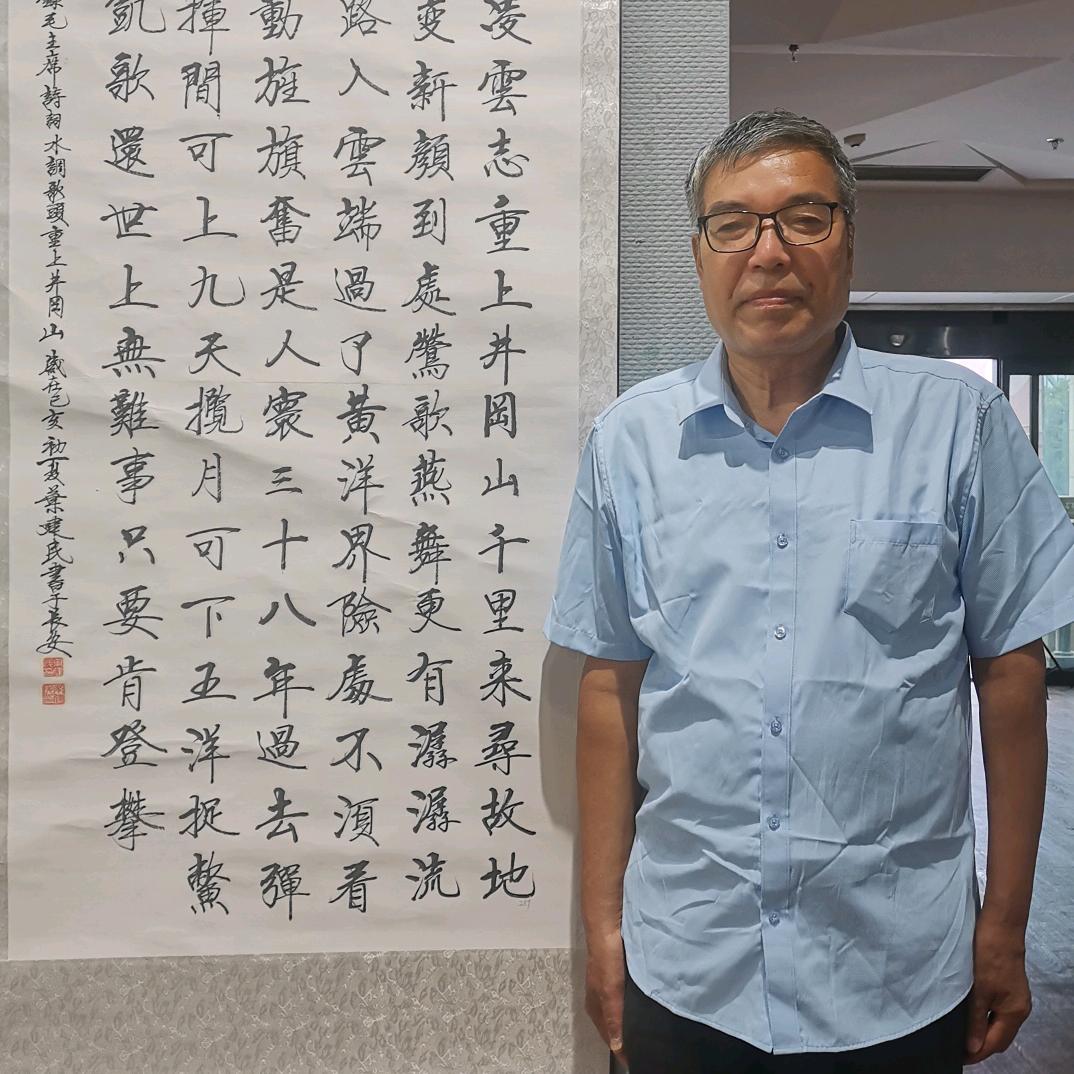 凌雲志重上井岡山千里来尋故地
變新顏到處鶯歌燕舞更有潺潺流
路入雲端過了黃洋界險處不須看
動旌旗奮是人寰三十八年過去彈
揮間可上九天攬月可下五洋捉鱉
凱歌還世上無難事只要肯登攀
錄毛主席詩詞水調歌頭重上井岡山 歲在己亥初夏葉建民書于長安